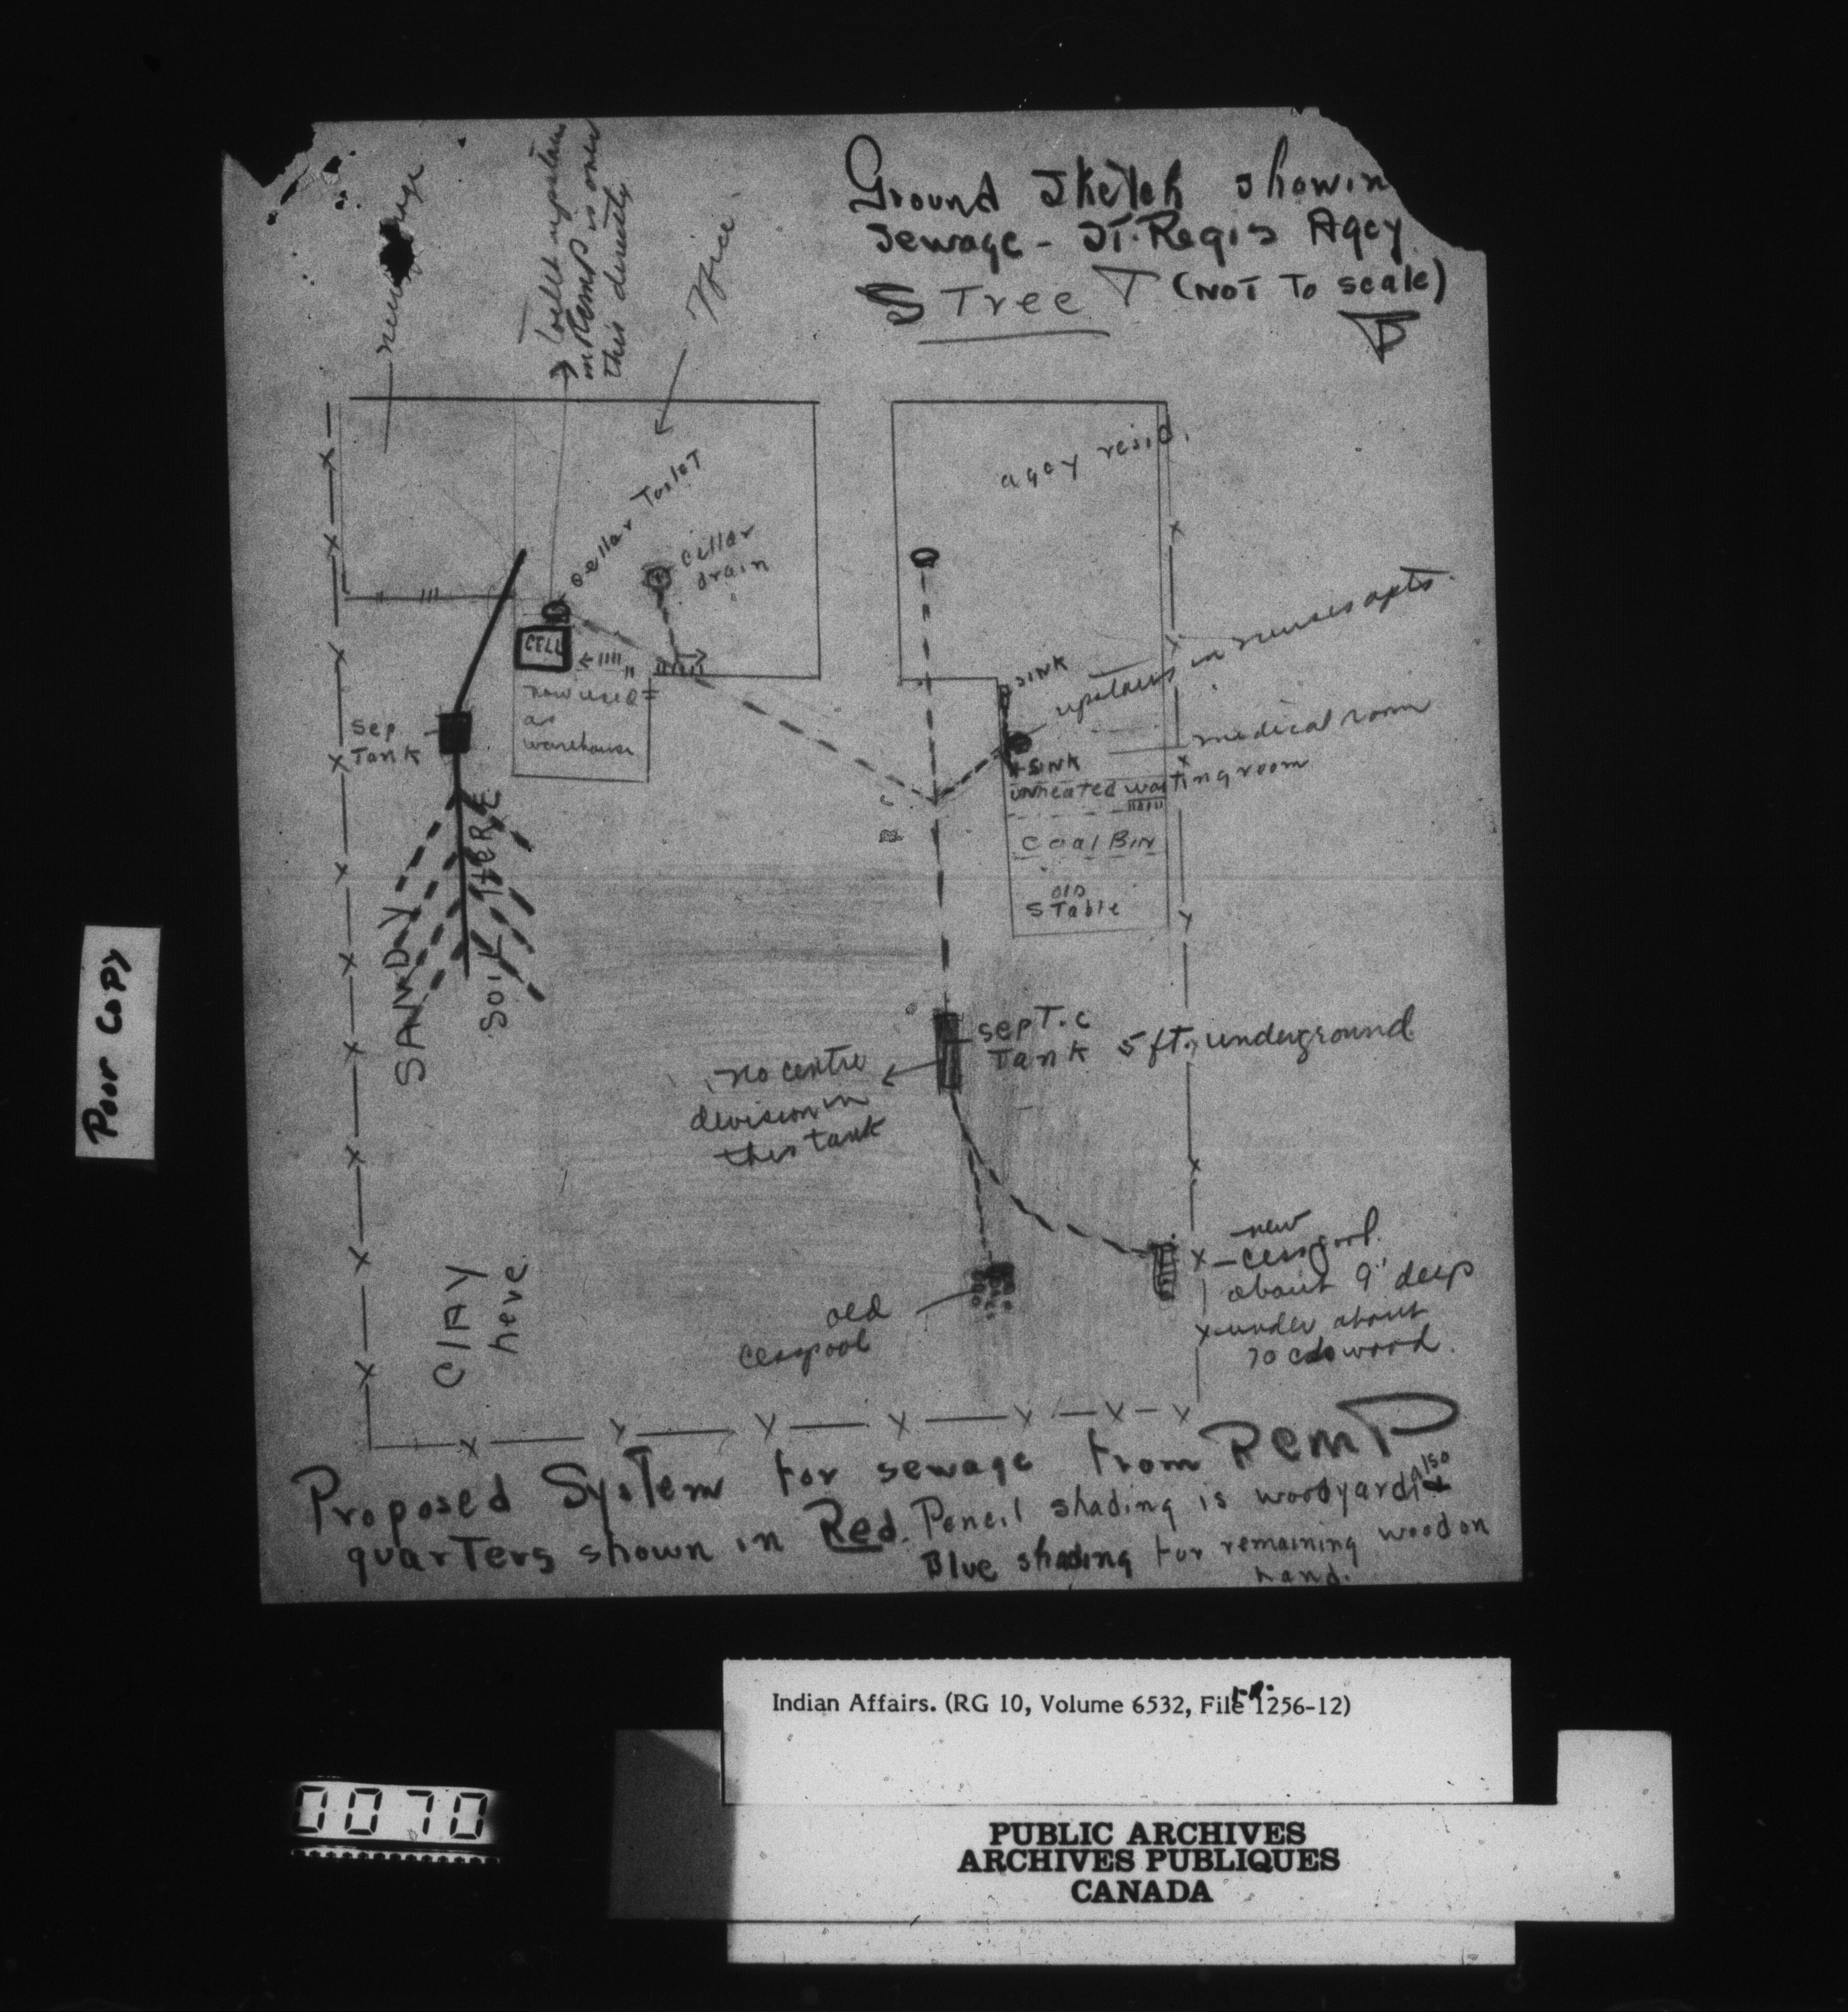 Ground Sketch showin
sewage - ST. Regis Agcy
STreeT (NOT To scale)
toilet upstairs
in RCMP is over
this directly
office
agcy resid.
cellar ToileT
cellar
drain
CELL
now used
as
warehouse
Sep
Tank
SANDY
SOIL HERE
SINK
upstairs in nurses apts.
medical room
SINK
unheated waiting room
Coal Bin
OLD
STable
sepT.c
Tank 5 ft. underground
no centre
division in
this tank
new
cesspool
about 9' deep
under about
70 cds wood.
old
cesspool
ClAY
here
Proposed SysTem for sewage from RCMP
quarTers shown in Red. Pencil shading is woodyard also
Blue shading for remaining wood on
hand.
Poor Copy
Indian Affairs. (RG 10, Volume 6532, File 1256-12)
0070
PUBLIC ARCHIVES
ARCHIVES PUBLIQUES
CANADA